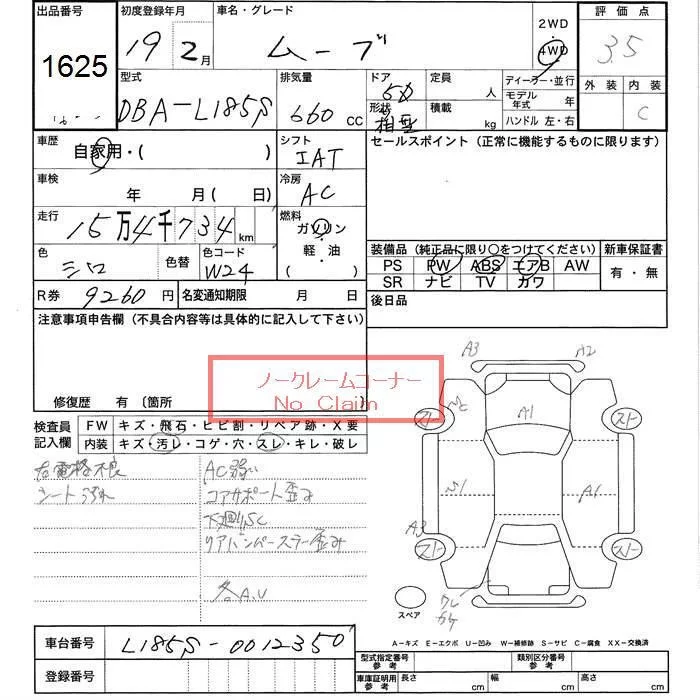 出品番号 初度登録年月 車名・グレード 2WD 評価点
1625 19 2月 ムーブ 4WD 3.5
型式 排気量 ドア 定員 ディーラー・並行 外装 内装
DBA-L185S 660 CC 5D 人 モデル年式 年 C
形状 積載 kg ハンドル 左・右
箱型
車歴 シフト セールスポイント(正常に機能するものに限ります)
自家用・( ) IAT
車検 冷房
年 月(日) AC
走行 燃料
15万4千734 km ガソリン
軽・油
( )
色 色替 色コード 装備品(純正品に限り○をつけてください) 新車保証書
シロ W24 PS PW ABS エアB AW 有・無
SR ナビ TV カワ
R券 9260円 名変通知期限 月 日 後日品
注意事項申告欄(不具合内容等は具体的に記入して下さい)
ノークレームコーナー
No Claim
修復歴 有(箇所 )
検査員記入欄 FW キズ・飛石・ヒビ割・リペア跡・X要
内装 キズ・汚レ・コゲ・穴・スレ・キレ・破レ
右電格不良 AC弱い
シートうぶれ コアサポート歪み
下廻りSC
リアバンパーステー歪み
各A.U
A3 A2
スト A1 スト
A1
A3
スト スト
ワレ
カケ
スペア
A-キズ E-エクボ U-凹み W-補修跡 S-サビ C-腐食 XX-交換済
車台番号 L185S-0012350
型式指定番号 参考 類別区分番号 参考
登録番号 車庫証明用 参考 長さ cm 幅 cm 高さ cm